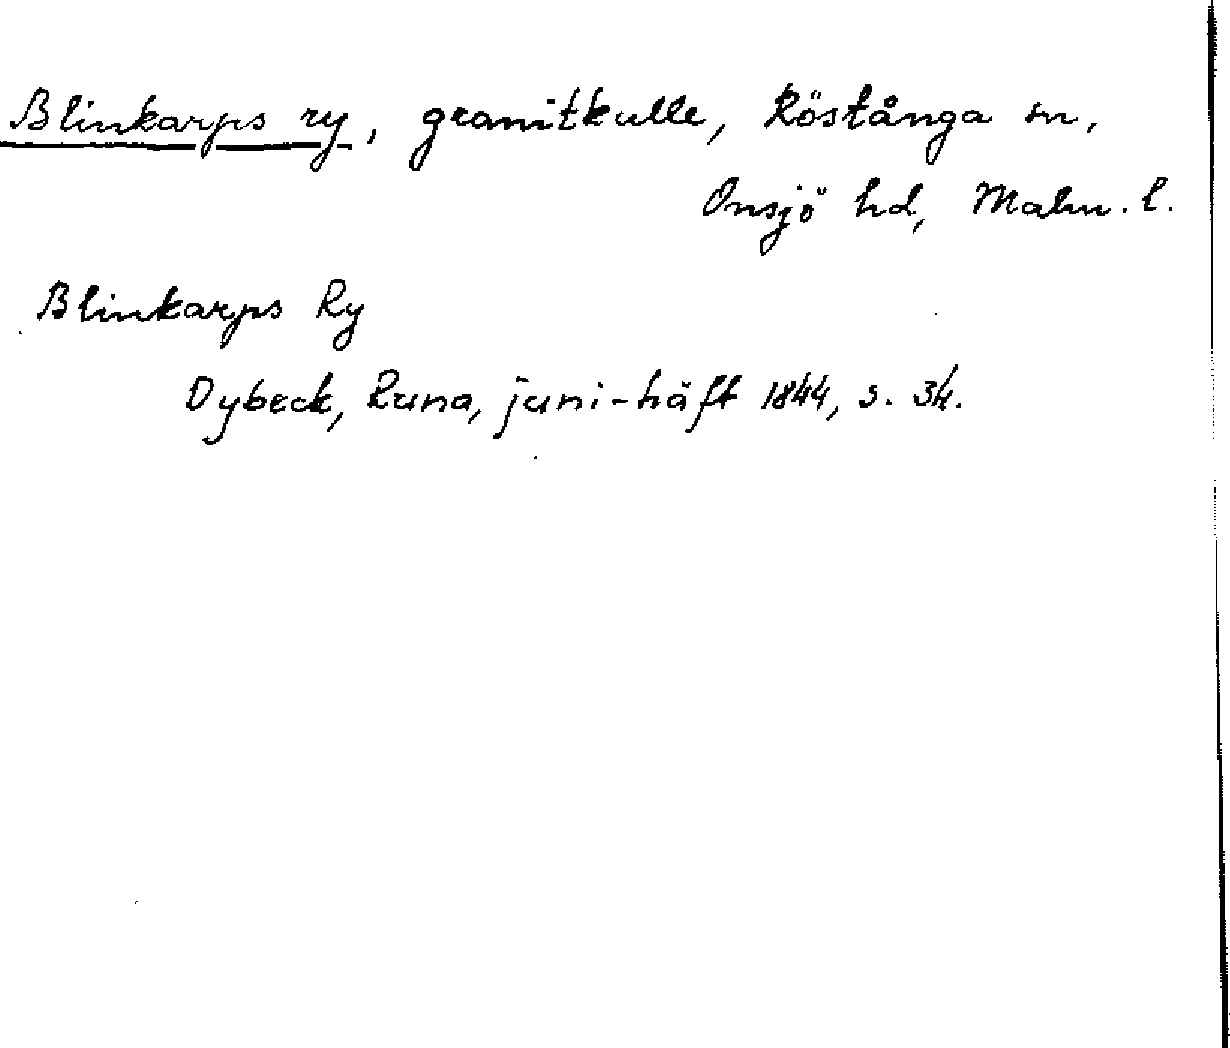 Blinkarps ry, granitkulle, Röstånga sn,
Onsjö hd, Malm. l.
Blinkarps Ry
Dybeck, Runa, juni-häft 1844, s. 34.